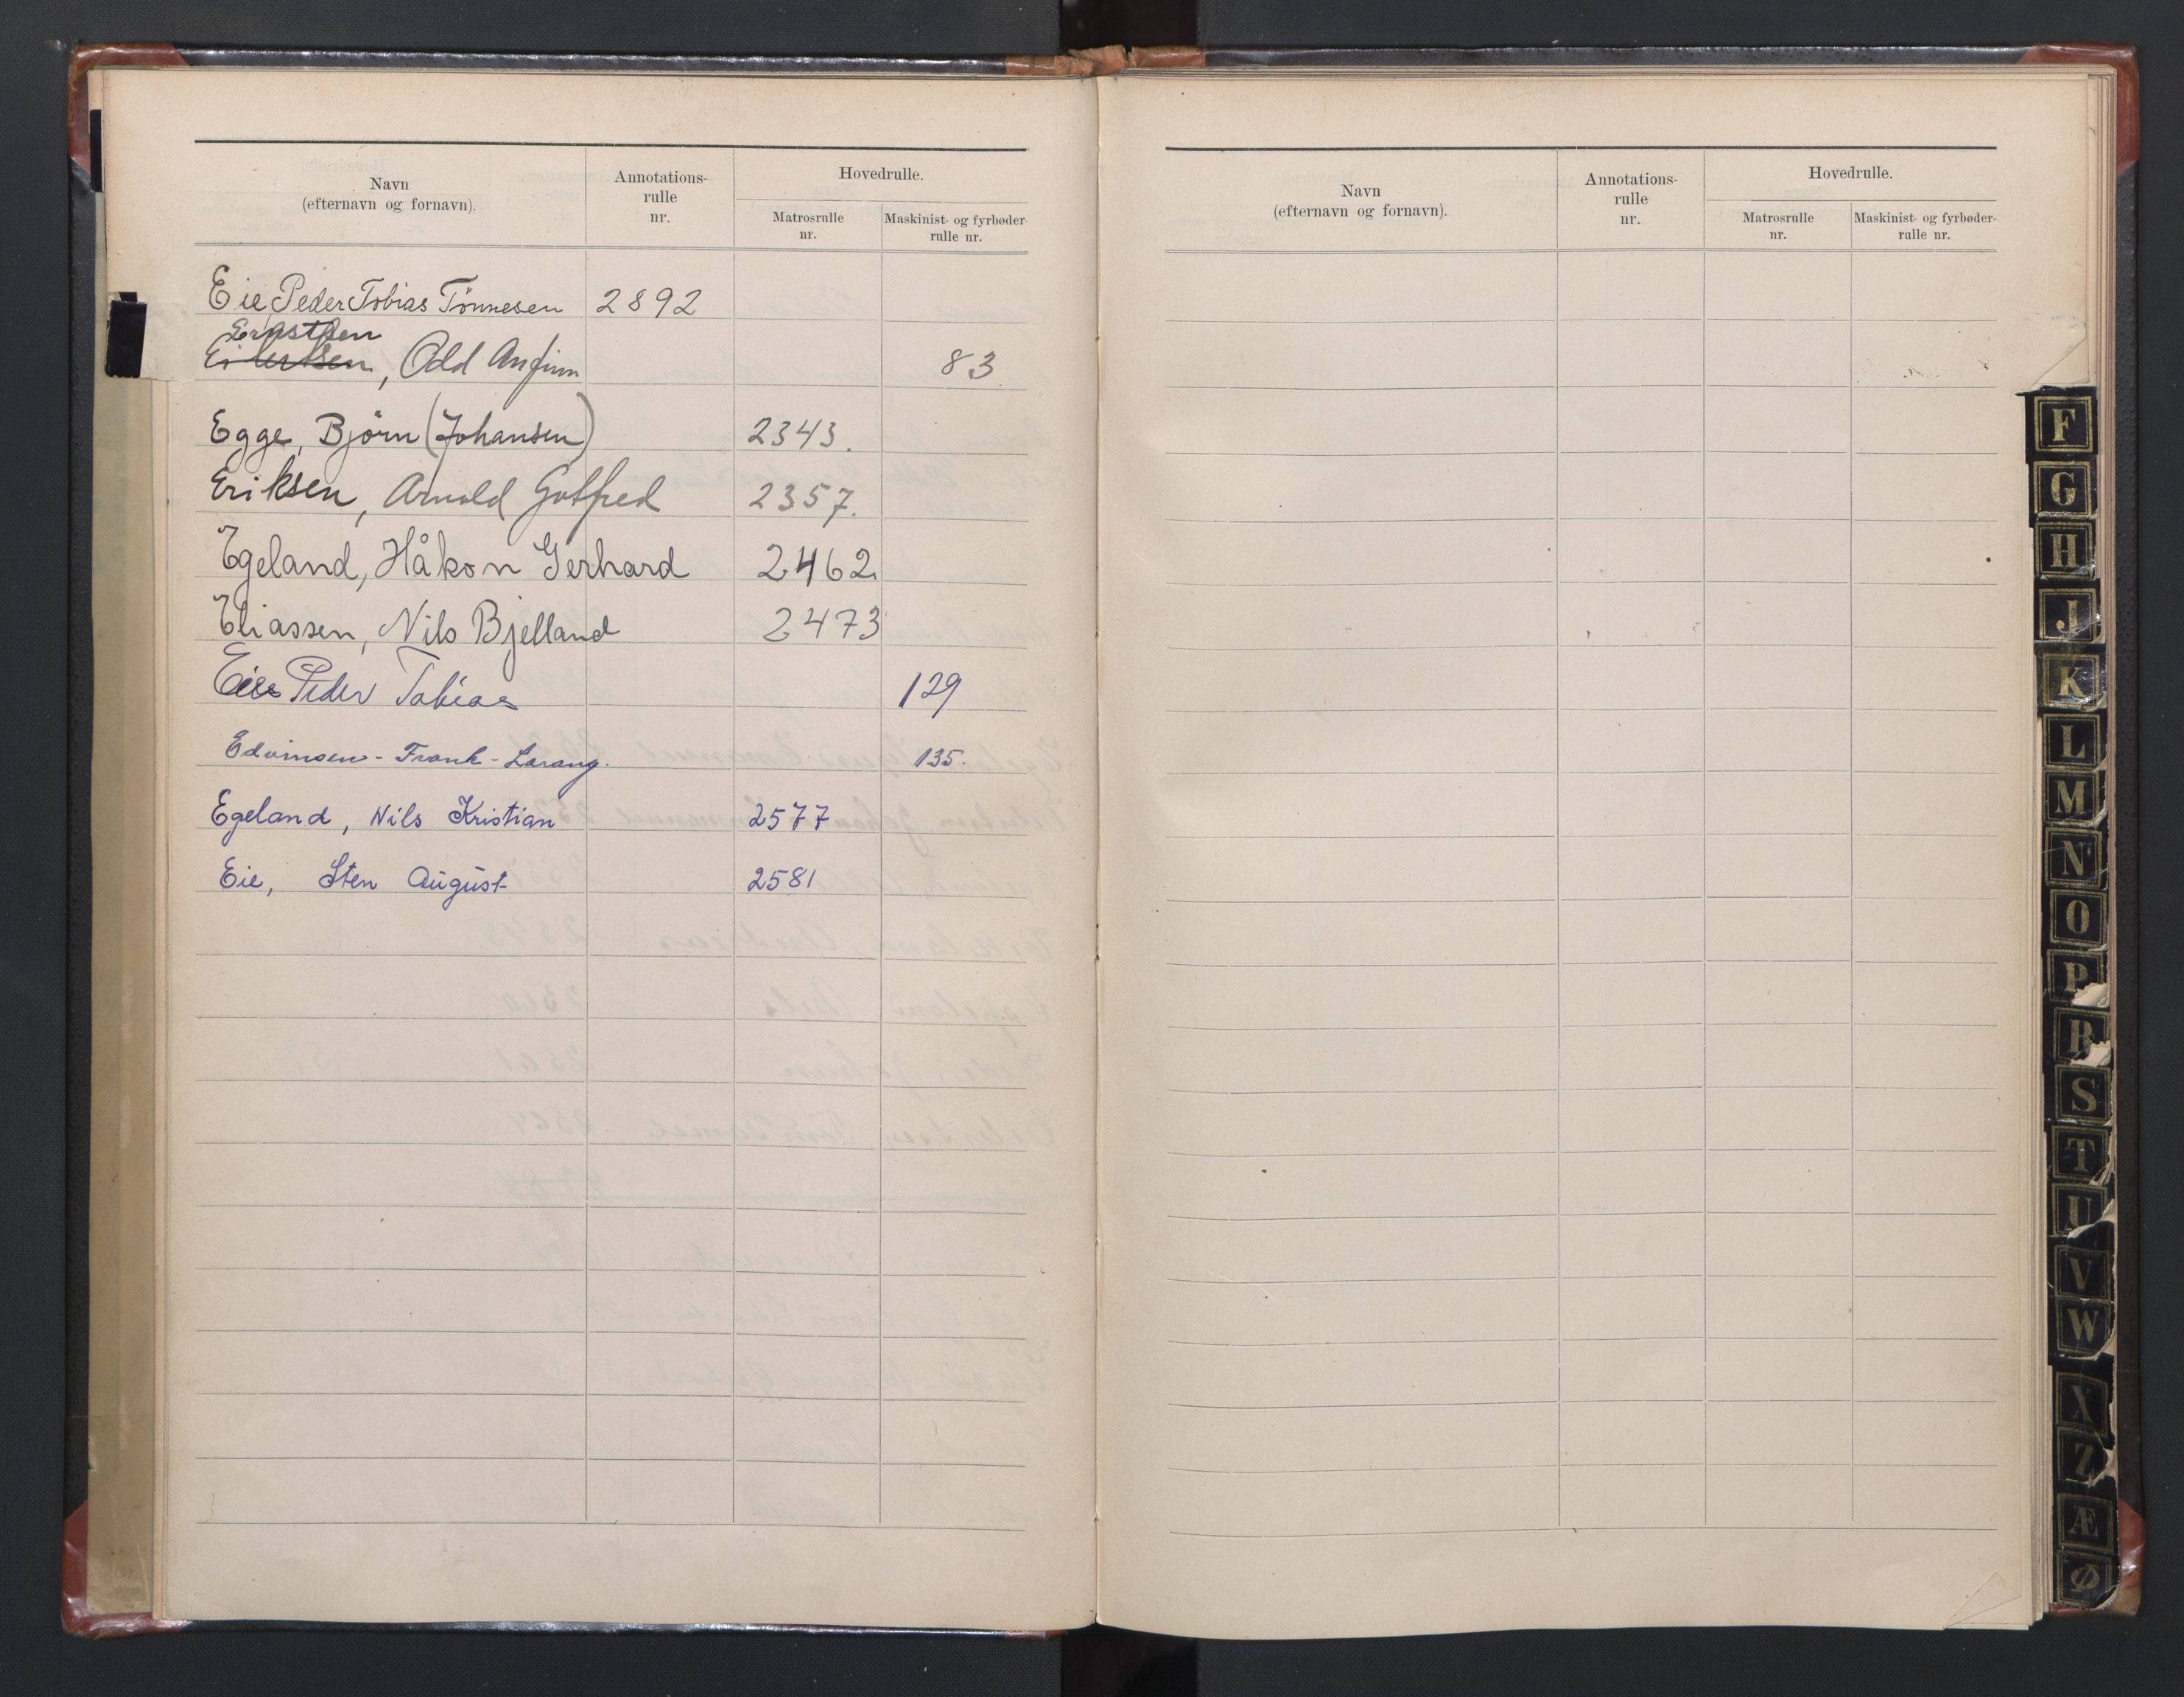 Navn
(efternavn og fornavn).
Annotations-
rulle
nr.
Hovedrulle.
Matrosrulle
nr.
Maskinist- og fyrbøder-
rulle nr.
Eie, Peder Tobias Tönnesen 2892
Ernstsen
Eilertsen, Odd Anfinn 83
Egge, Björn (Johansen) 2343.
Eriksen, Arnold Gotfred 2357.
Egeland, Håkon Gerhard 2462
Eliassen, Nils Bjelland 2473
Eie Peder Tobias 129
Edvinsen - Frank - Larang. 135.
Egeland, Nils Kristian 2577
Eie, Sten August 2581
Navn
(efternavn og fornavn).
Annotations-
rulle
nr.
Hovedrulle.
Matrosrulle
nr.
Maskinist- og fyrbøder-
rulle nr.
F
G
H
J
K
L
M
N
O
P
R
S
T
U
V
W
X
Z
Æ
Ø